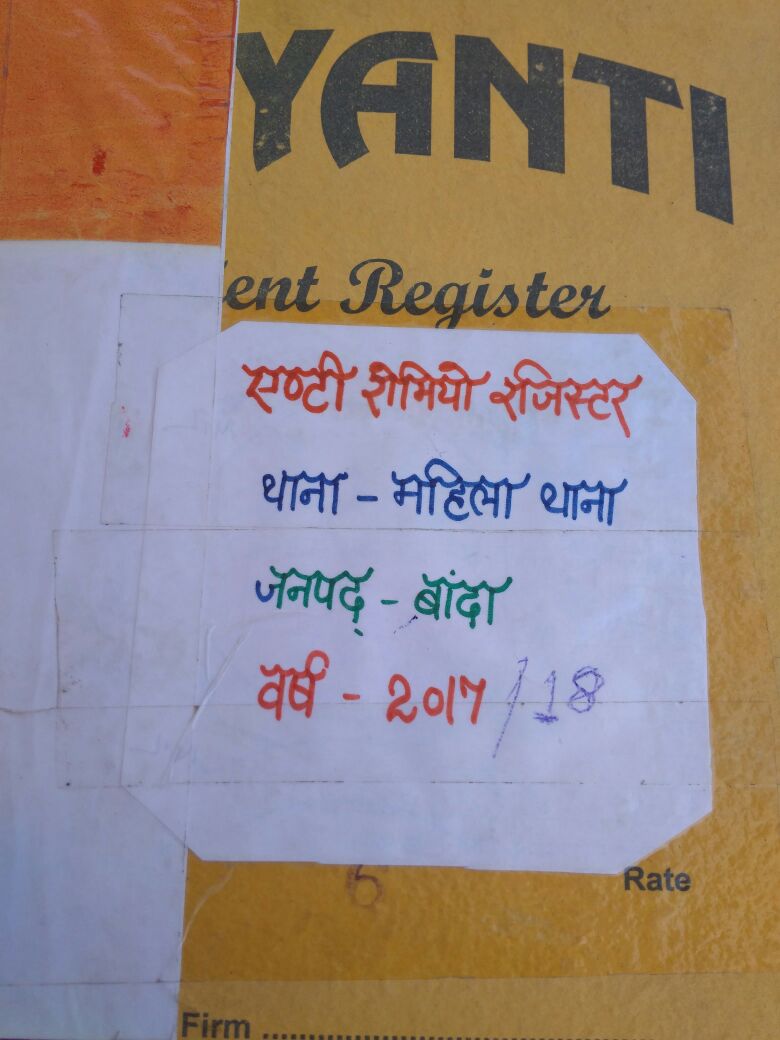 YANTI
ient Register
एण्टी रोमियो रजिस्टर
थाना - महिला थाना
जनपद् - बांदा
वर्ष - 2017/18
6
Rate
Firm